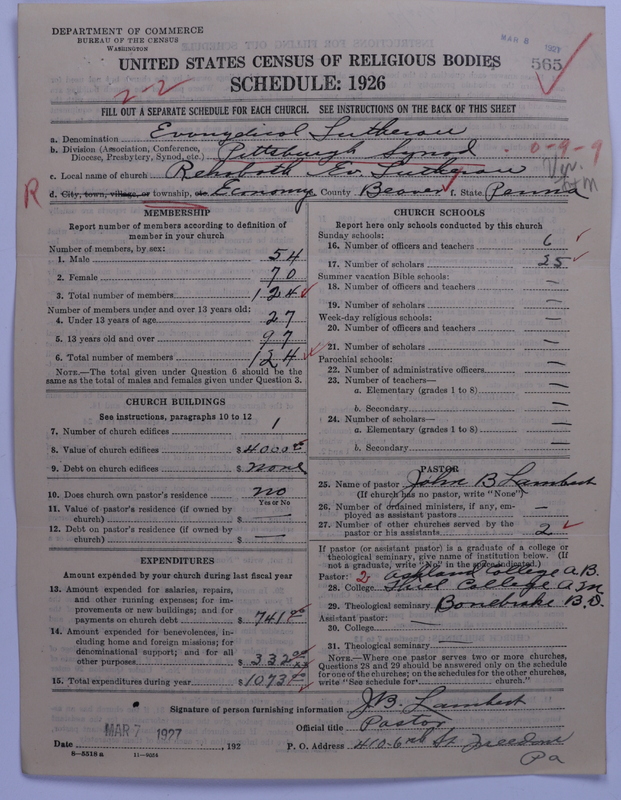 DEPARTMENT OF COMMERCE
BUREAU OF THE CENSUS
WASHINGTON
565
UNITED STATES CENSUS OF RELIGIOUS BODIES
SCHEDULE: 1926
2-2
FILL OUT A SEPARATE SCHEDULE FOR EACH CHURCH. SEE INSTRUCTIONS ON THE BACK OF THIS SHEET
a. Denomination Evangelical Lutheran
b. Division (Association, Conference, Diocese, Presbytery, Synod, etc.) Pittsburgh Synod 0-9-9
c. Local name of church Rehoboth Ev. Lutheran
R d. City, town, village, or township, etc. Economy County Beaver f. State Penna
MEMBERSHIP
Report number of members according to definition of
member in your church
Number of members, by sex:
1. Male 54
2. Female 70
3. Total number of members 124
Number of members under and over 13 years old:
4. Under 13 years of age 27
5. 13 years old and over 97
6. Total number of members 124
NOTE.—The total given under Question 6 should be the
same as the total of males and females given under Question 3.
CHURCH BUILDINGS
See instructions, paragraphs 10 to 12
7. Number of church edifices 1
8. Value of church edifices $4000 00
9. Debt on church edifices $ None
10. Does church own pastor's residence no
Yes or No
11. Value of pastor's residence (if owned by
church) $ —
12. Debt on pastor's residence (if owned by
church) $ —
EXPENDITURES
Amount expended by your church during last fiscal year
13. Amount expended for salaries, repairs,
and other running expenses; for im-
provements or new buildings; and for
payments on church debt $ 741
14. Amount expended for benevolences, in-
cluding home and foreign missions; for
denominational support; and for all
other purposes $ 332
15. Total expenditures during year $ 1073
CHURCH SCHOOLS
Report here only schools conducted by this church
Sunday schools:
16. Number of officers and teachers 6
17. Number of scholars 35
Summer vacation Bible schools:
18. Number of officers and teachers —
19. Number of scholars —
Week-day religious schools:
20. Number of officers and teachers —
21. Number of scholars —
Parochial schools:
22. Number of administrative officers —
23. Number of teachers—
a. Elementary (grades 1 to 8) —
b. Secondary —
24. Number of scholars—
a. Elementary (grades 1 to 8) —
b. Secondary —
PASTOR
25. Name of pastor John B Lambert
(If church has no pastor, write "None")
26. Number of ordained ministers, if any, em-
ployed as assistant pastors —
27. Number of other churches served by the
pastor or his assistants 2
If pastor (or assistant pastor) is a graduate of a college or
theological seminary, give name of institution below. (If
not a graduate, write "No" in the space indicated.)
Pastor: 2 Ashland College A.B.
28. College Thiel College A.M
29. Theological seminary Bonebrake B.D.
Assistant pastor:
30. College —
31. Theological seminary —
NOTE.—Where one pastor serves two or more churches,
Questions 28 and 29 should be answered only on the schedule
for one of the churches; on the schedules for the other churches,
write "See schedule for church."
Signature of person furnishing information J.B. Lambert
Official title Pastor
MAR 7 1927
Date , 192
P. O. Address 410-6th St Freedom
Pa
8-5518 a 11-9024